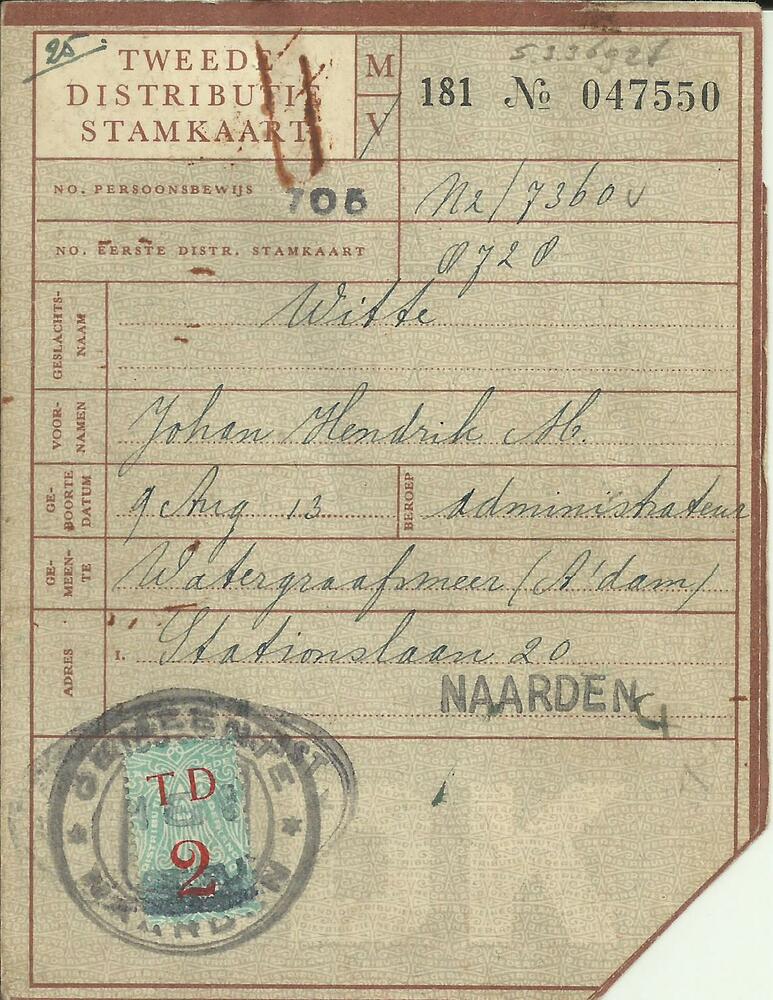 25
TWEEDE
DISTRIBUTIE
STAMKAART
M
V
181 No 047550
NO. PERSOONSBEWIJS
705
N2/7360
NO. EERSTE DISTR. STAMKAART
0720
GESLACHTS-
NAAM
Witte
VOOR-
NAMEN
Johan Hendrik M.
GE-
BOORTE
DATUM
9 Aug 13
BEROEP
administrateur
GE-
MEEN-
TE
Watergraafsmeer (A'dam)
ADRES
1. Stationslaan 20
NAARDEN
GEMEENTE
NAARDEN
TD
2